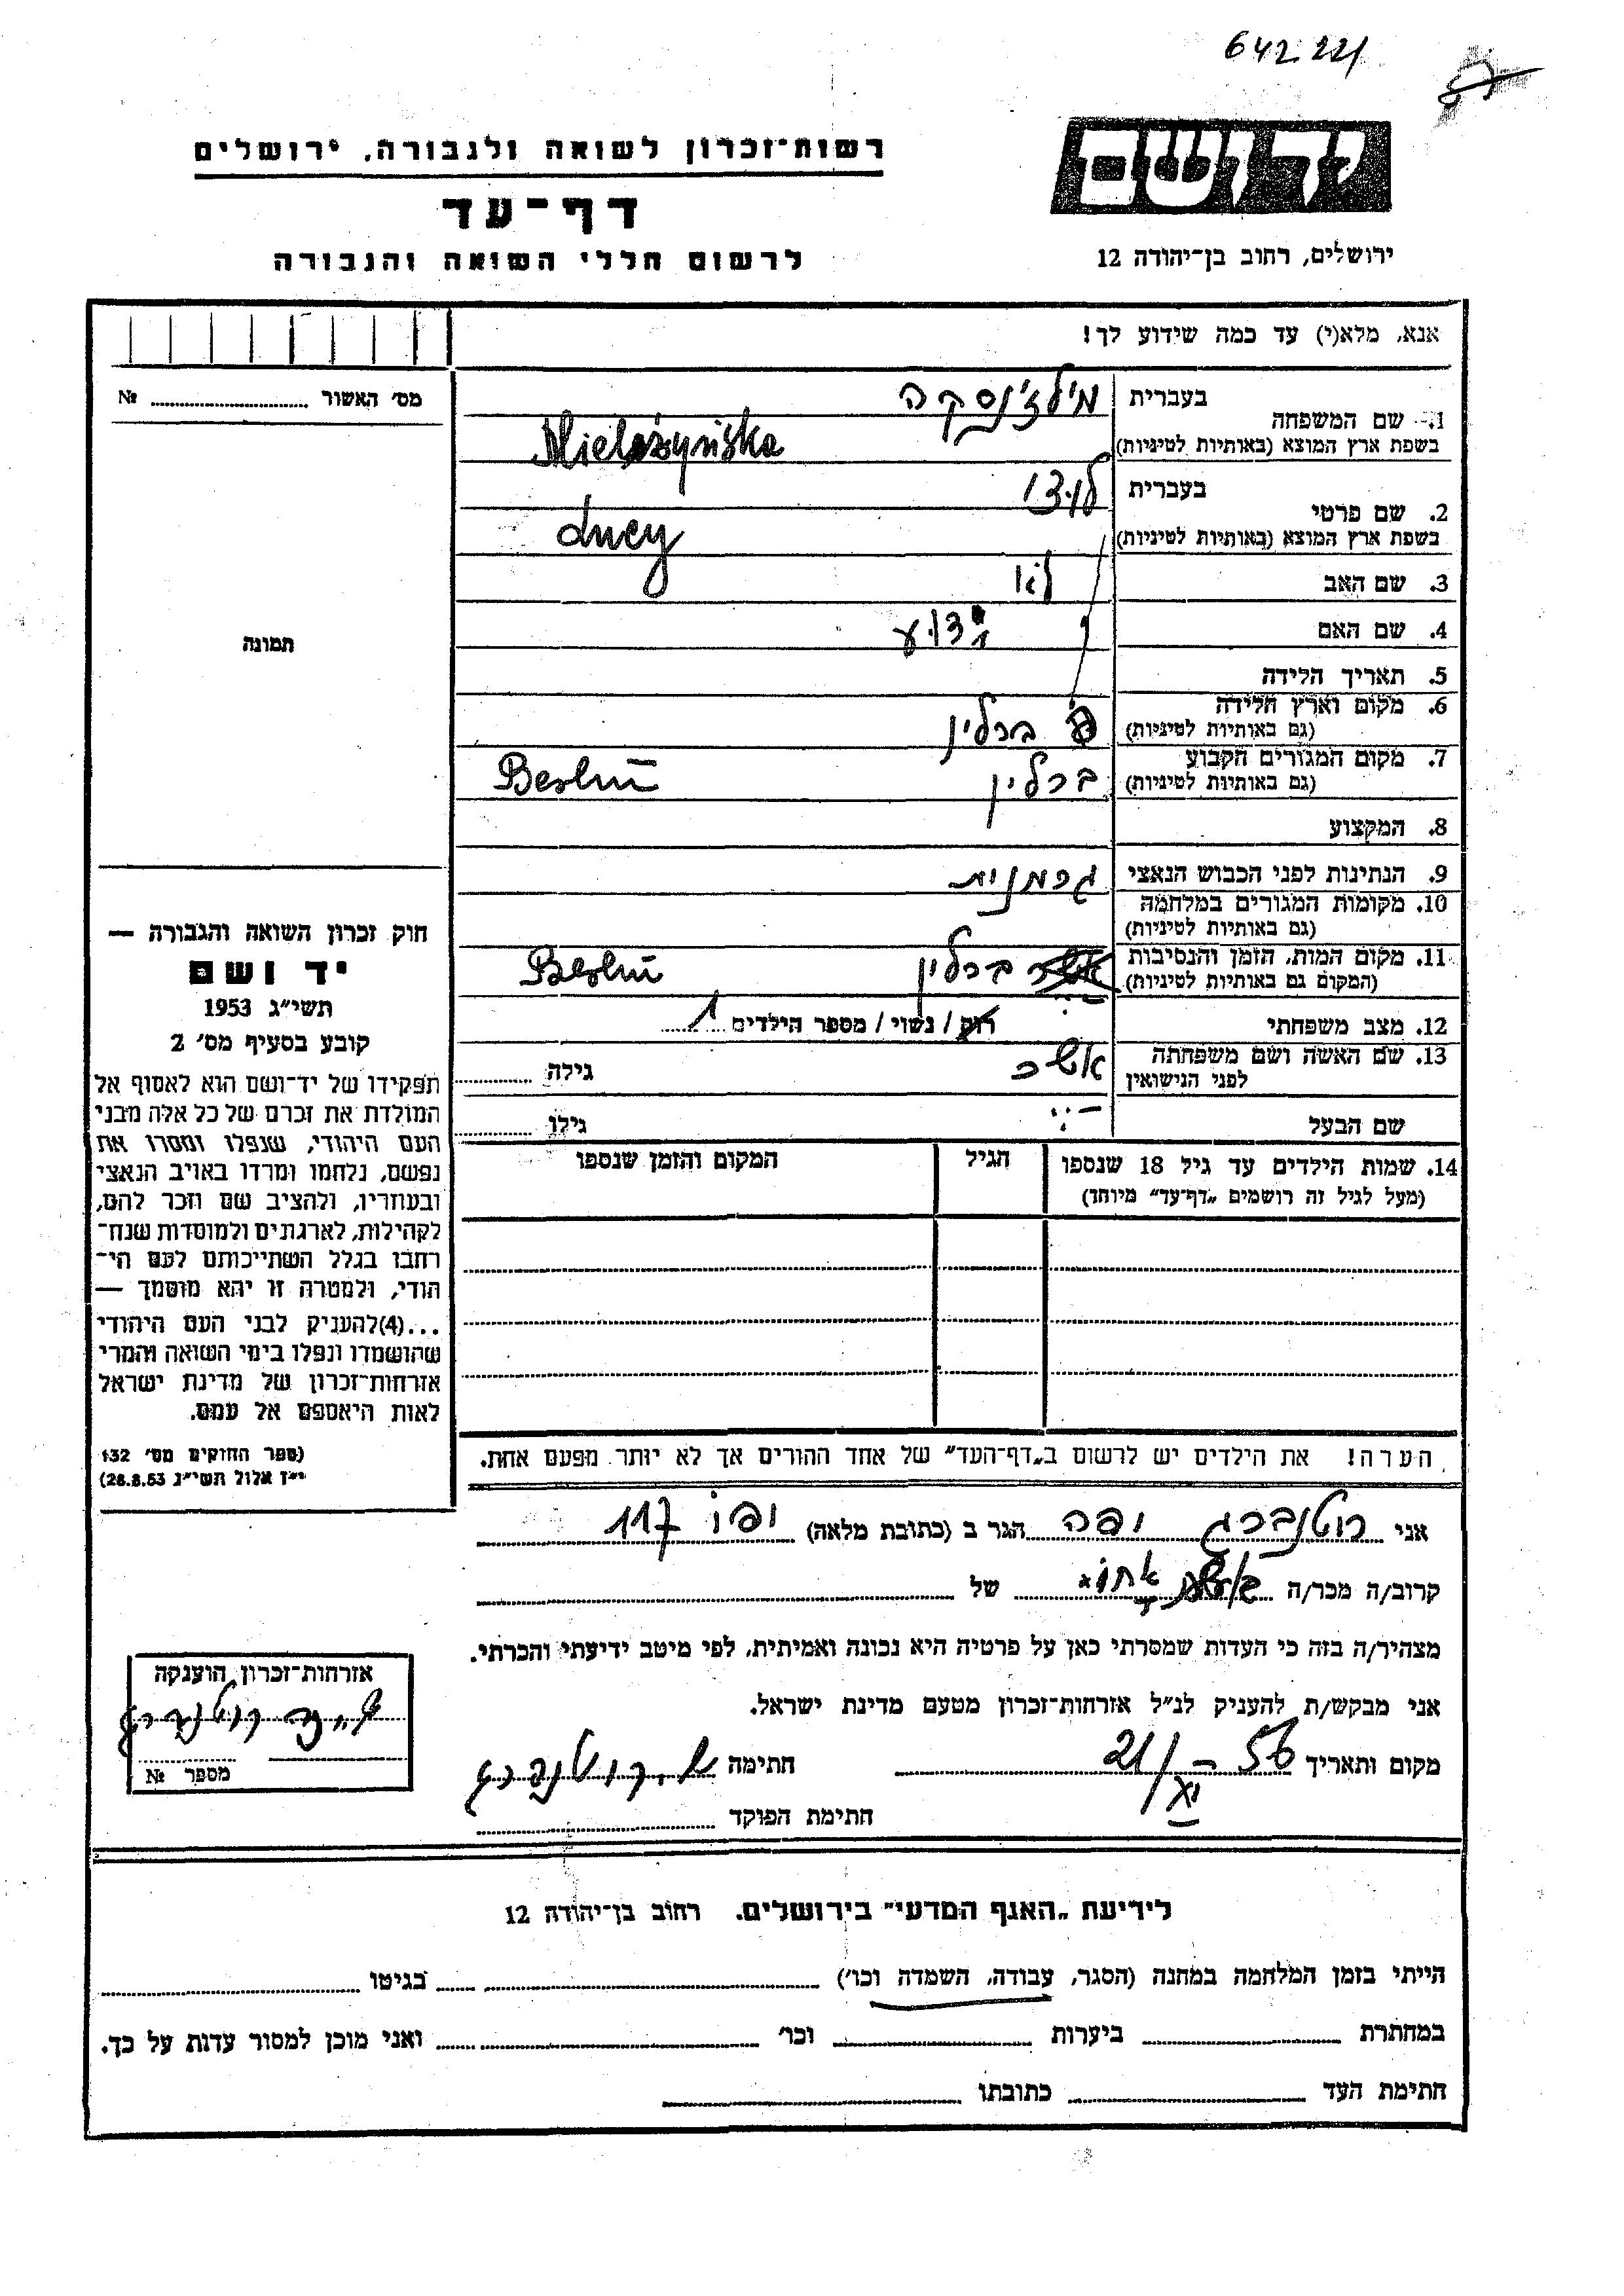 642 221
רשות-זכרון לשואה ולגבורה, ירושלים
דף-עד
לרשום חללי השואה והגבורה
יד ושם
ירושלים, רחוב בן-יהודה 12
אנא, מלא(י) עד כמה שידוע לך!
מס׳ האשור № 
תמונה
חוק זכרון השואה והגבורה —
יד ושם
תשי״ג 1953
קובע בסעיף מס׳ 2
תפקידו של יד-ושם הוא לאסוף אל
המולדת את זכרם של כל אלה מבני
העם היהודי, שנפלו ומסרו את
נפשם, נלחמו ומרדו באויב הנאצי
ובעוזריו, ולהציב שם וזכר להם,
לקהילות, לארגונים ולמוסדות שנח-
רחבו בגלל השתייכותם לעם הי-
הודי, ולמטרה זו יהא מוסמך —
...(4)להעניק לבני העם היהודי
שהושמדו ונפלו בימי השואה והמרי
אזרחות-זכרון של מדינת ישראל
לאות היאספם אל עמם.
(ספר החוקים מס׳ 132
י״ז אלול תשי״ג 28.8.53)
1. שם המשפחה
בעברית מילז'נסקה
בשפת ארץ המוצא (באותיות לטיניות) Mielażyńska
2. שם פרטי
בעברית לוצי
בשפת ארץ המוצא (באותיות לטיניות) Lucy
3. שם האב
4. שם האם
5. תאריך הלידה
6. מקום וארץ הלידה
(גם באותיות לטיניות) ברלין
7. מקום המגורים הקבוע
(גם באותיות לטיניות) ברלין Berlin
8. המקצוע
9. הנתינות לפני הכבוש הנאצי גרמנית
10. מקומות המגורים במלחמה
(גם באותיות לטיניות)
11. מקום המות, הזמן והנסיבות
(המקום גם באותיות לטיניות) ברלין Berlin
12. מצב משפחתי רווק / נשוי / מספר הילדים 1
13. שם האשה ושם משפחתה
לפני הנישואין אשר גילה
שם הבעל גילו
14. שמות הילדים עד גיל 18 שנספו הגיל המקום והזמן שנספו
(מעל לגיל זה רושמים „דף-עד״ מיוחד)
הערה! את הילדים יש לרשום ב„דף-העד״ של אחד ההורים אך לא יותר מפעם אחת.
אני רוטנברג יפה הגר ב (כתובת מלאה) יפו 117
קרוב/ה מכר/ה של
מצהיר/ה בזה כי העדות שמסרתי כאן על פרטיה היא נכונה ואמיתית, לפי מיטב ידיעתי והכרתי.
אני מבקש/ת להעניק לנ״ל אזרחות-זכרון מטעם מדינת ישראל.
מקום ותאריך 21/XI-56 חתימה רוטנברג
חתימת הפוקד
אזרחות-זכרון הוענקה
רוטנברג
מספר №
לידיעת „האגף המדעי״ בירושלים. רחוב בן-יהודה 12
הייתי בזמן המלחמה במחנה (הסגר, עבודה, השמדה וכו׳) בגיטו
במחתרת ביערות וכו׳ ואני מוכן למסור עדות על כך.
חתימת העד כתובתו